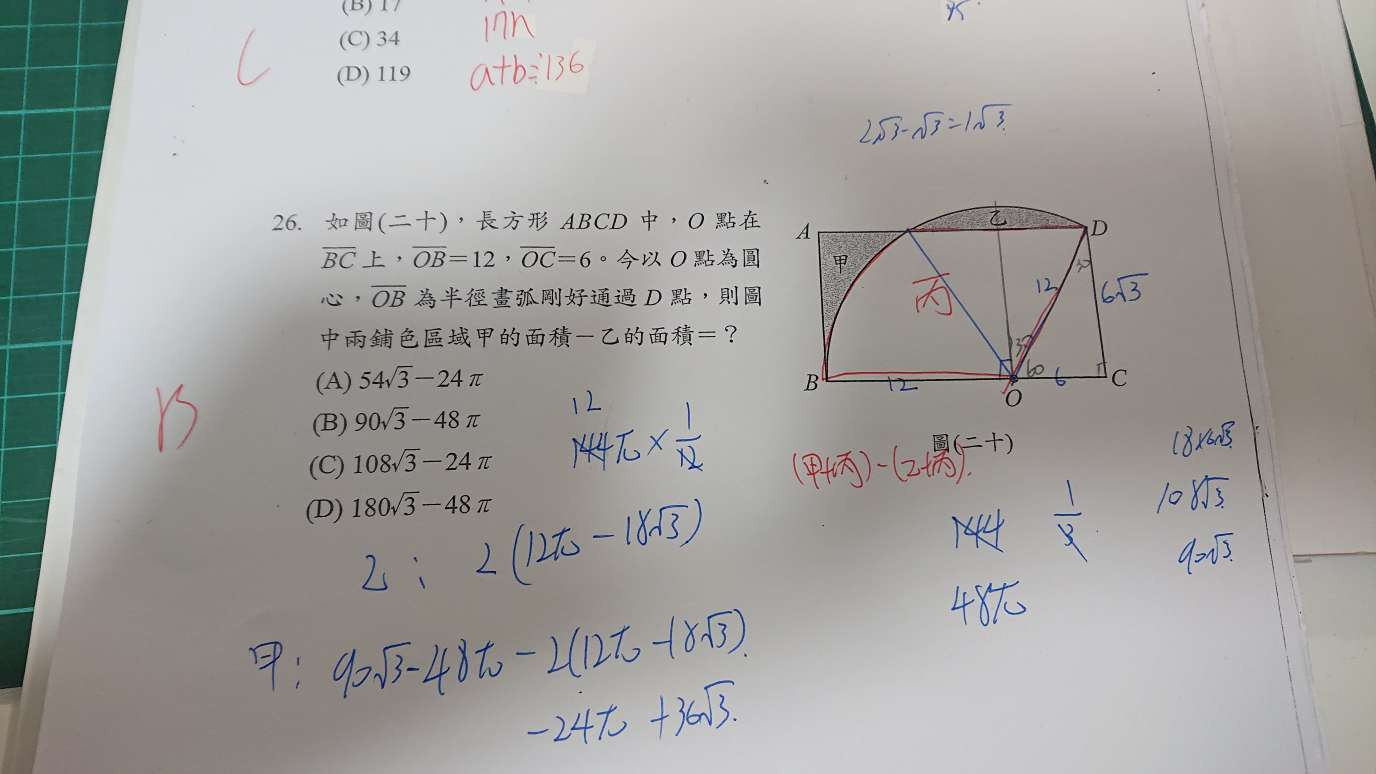 (B) 17
17n
(C) 34
(D) 119
a+b=136
2√3-√3=1√3
26. 如圖(二十)，長方形 ABCD 中，O 點在
BC 上，OB=12，OC=6。今以 O 點為圓
心，OB 為半徑畫弧剛好通過 D 點，則圖
中兩鋪色區域甲的面積－乙的面積＝？
(A) 54√3－24π
(B) 90√3－48π
(C) 108√3－24π
(D) 180√3－48π
B
A
甲
乙
D
丙
12
6√3
30
60
B
12
O
6
C
圖(二十)
(甲+丙)-(乙+丙)
12
144π × 1/12
18×6√3
108√3
90√3
144 1/3
48π
乙: 2(12π-18√3)
甲: 90√3-48π-2(12π-18√3)
-24π+36√3